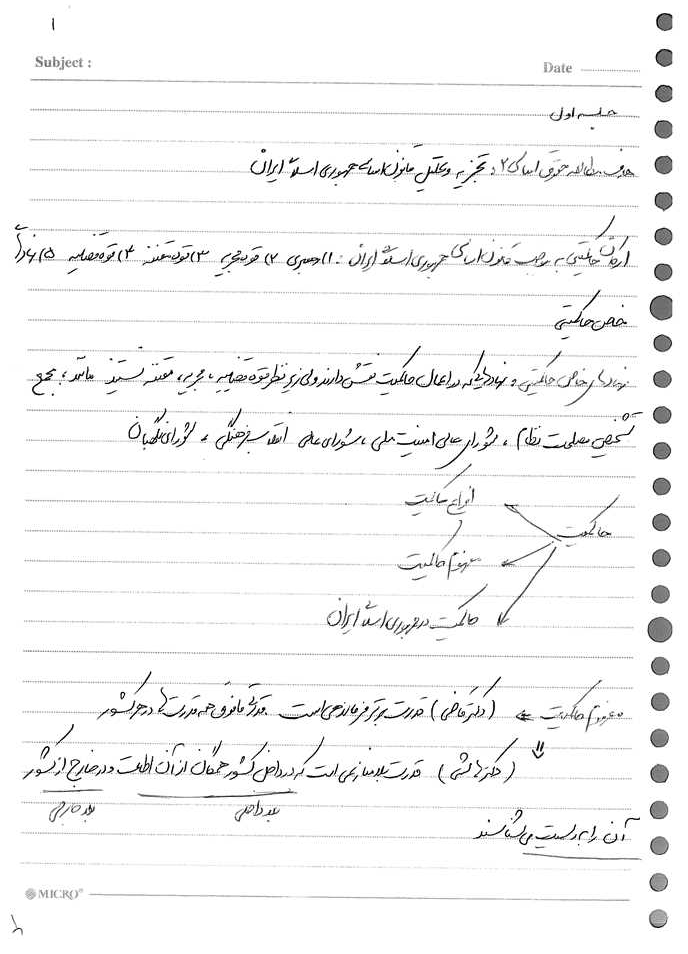 ۱
Subject :
Date
جلسه اول
هدف مطالعه حقوق اساسی ۲ : تجزیه و تحلیل قانون اساسی جمهوری اسلامی ایران
ارکان حاکمیتی به موجب قانون اساسی جمهوری اسلامی ایران : ۱) رهبری ۲) قوه مجریه ۳) قوه مقننه ۴) قوه قضاییه ۵) نهادهای
خاص حاکمیتی
نهادهای خاص حاکمیتی : نهادهایی که در اعمال حاکمیت نقش دارند ولی زیر نظر قوه قضاییه ، مجریه ، مقننه نیستند مانند : مجمع
تشخیص مصلحت نظام ، شورای عالی امنیت ملی ، شورای عالی انقلاب فرهنگی ، شورای نگهبان
انواع حاکمیت
حاکمیت
مفهوم حاکمیت
حاکمیت در جمهوری اسلامی ایران
مفهوم حاکمیت ← (دکتر قاضی) قدرت برتر فرماندهی است قدرتی مافوق همه قدرت ها در هر کشور
(دکتر هاشمی) قدرت بلامنازعی است که در داخل کشور همگان از آن اطاعت و در خارج از کشور
بعد داخلی بعد خارجی
آن را به رسمیت می شناسند
MICRO